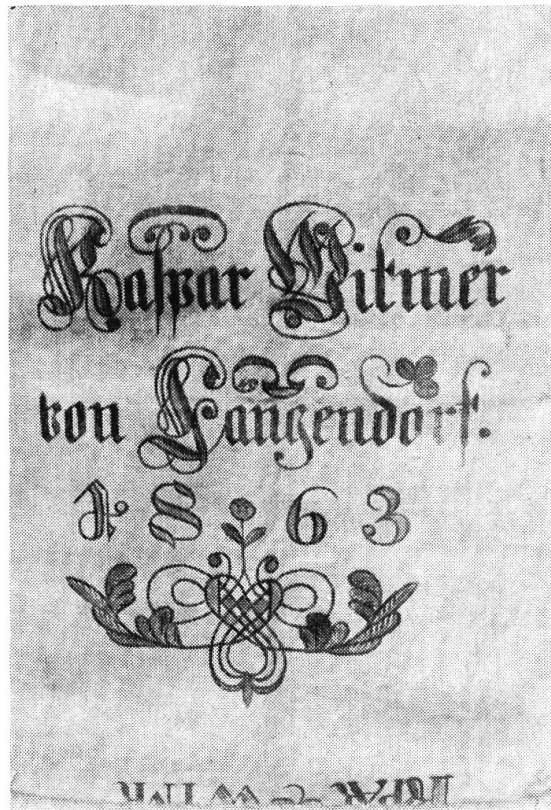 Kaſpar Witmer
von Langendorf.
1863